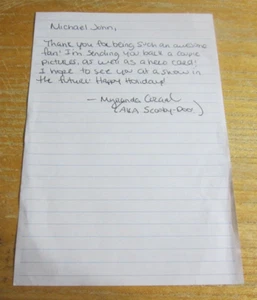 Michael Jonn,
Thank you for being such an awesome
fan! I'm sending you back a couple
pictures, as well as a hero card!
I hope to see you at a show in
the future! Happy Holidays!
(AKA Scooby-Doo)